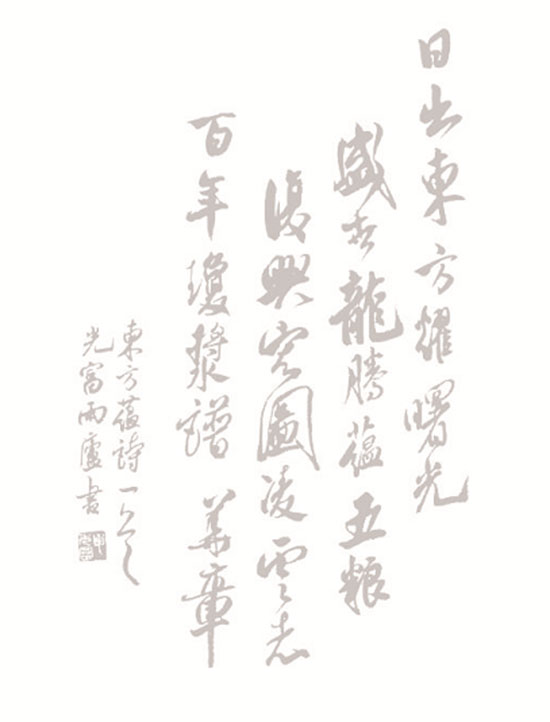 日出東方耀曙光
盛世龍騰蘊五粮
復興宏圖凌雲志
百年瓊漿譜華章
東方蘊詩一
光富雨廬書